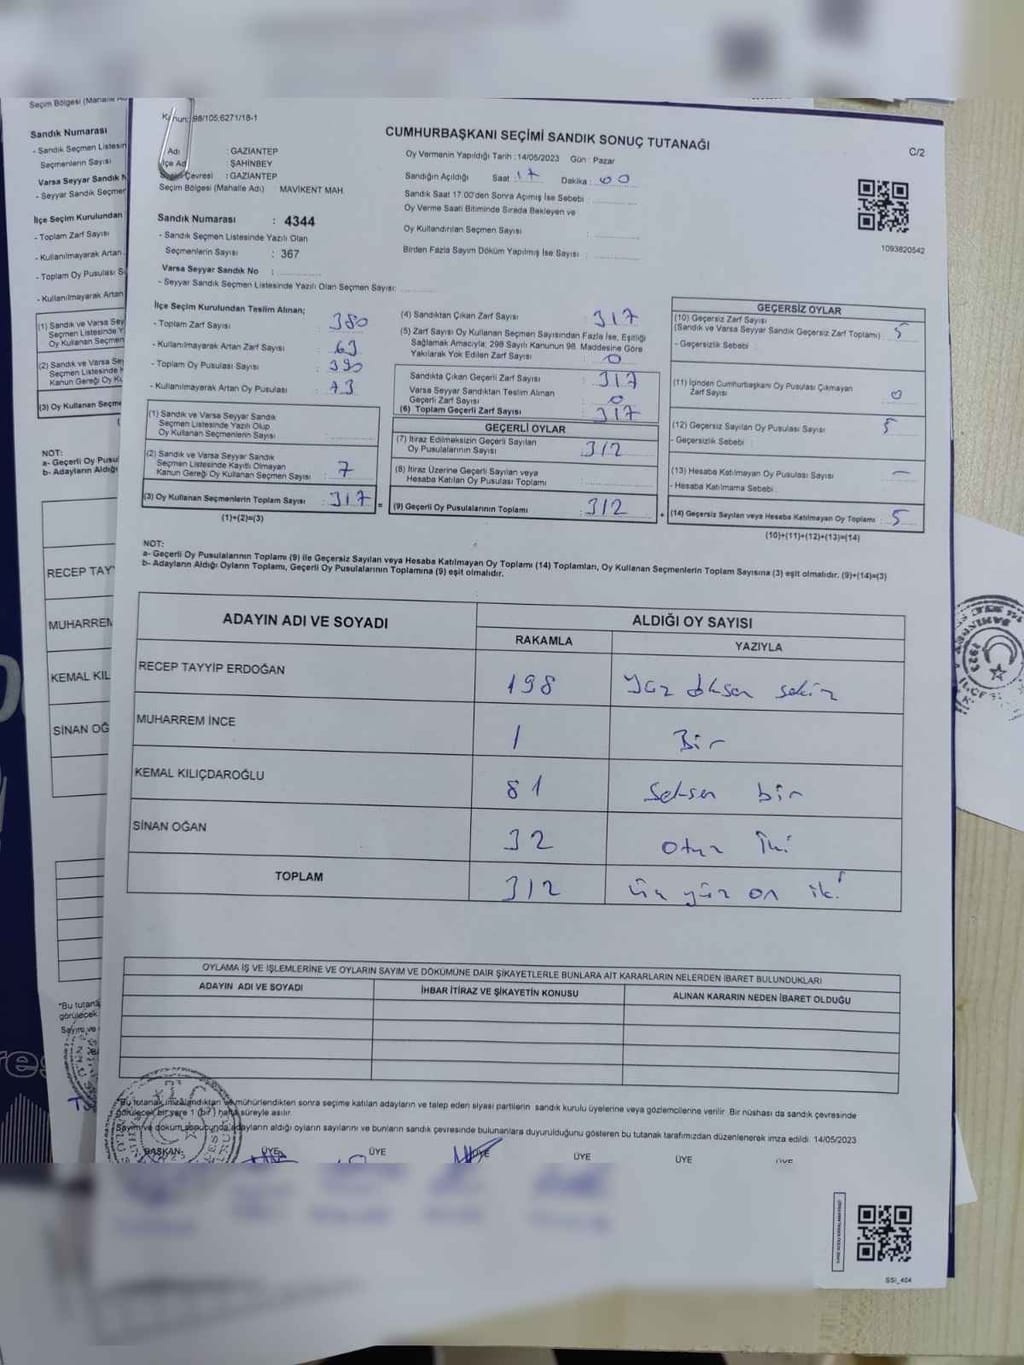 Seçim Bölgesi (Mahalle Ad
Sandık Numarası
- Sandık Seçmen Listesin
Seçmenlerin Sayısı
Varsa Seyyar Sandık N
- Seyyar Sandık Seçmer
İlçe Seçim Kurulundan
- Toplam Zarf Sayısı
- Kullanılmayarak Artan
- Toplam Oy Pusulası S
- Kullanılmayarak Artan
(1) Sandık ve Varsa Sey
Seçmen Listesinde Y
Oy Kullanan Seçmen
(2) Sandık ve Varsa Se
Seçmen Listesinde
Kanun Gereği Oy Ku
(3) Oy Kullanan Seçme
NOT:
a- Geçerli Oy Pusu
b- Adayların Aldığı
RECEP TAY
MUHARREM
KEMAL KIL
SİNAN OĞ
*Bu tutana
görülecek
Sayım ve
Kanun: 98/105,6271/18-1
CUMHURBAŞKANI SEÇİMİ SANDIK SONUÇ TUTANAĞI
C/2
Adı : GAZİANTEP
İlçe Ad : ŞAHİNBEY
Seçim Çevresi : GAZİANTEP
Seçim Bölgesi (Mahalle Adı) MAVİKENT MAH.
Oy Vermenin Yapıldığı Tarih : 14/05/2023 Gün : Pazar
Sandığın Açıldığı Saat : 17 Dakika : 00
Sandık Saat 17.00'den Sonra Açımış İse Sebebi :
Oy Verme Saati Bitiminde Sırada Bekleyen ve
Oy Kullandırılan Seçmen Sayısı :
Birden Fazla Sayım Döküm Yapılmış İse Sayısı :
1093820542
Sandık Numarası : 4344
- Sandık Seçmen Listesinde Yazılı Olan
Seçmenlerin Sayısı : 367
Varsa Seyyar Sandık No :
- Seyyar Sandık Seçmen Listesinde Yazılı Olan Seçmen Sayısı:
İlçe Seçim Kurulundan Teslim Alınan;
- Toplam Zarf Sayısı : 380
- Kullanılmayarak Artan Zarf Sayısı : 63
- Toplam Oy Pusulası Sayısı : 390
- Kullanılmayarak Artan Oy Pusulası : 73
(1) Sandık ve Varsa Seyyar Sandık
Seçmen Listesinde Yazılı Olup
Oy Kullanan Seçmenlerin Sayısı :
(2) Sandık ve Varsa Seyyar Sandık
Seçmen Listesinde Kayıtlı Olmayan
Kanun Gereği Oy Kullanan Seçmen Sayısı : 7
(3) Oy Kullanan Seçmenlerin Toplam Sayısı : 317 =
(1)+(2)=(3)
(4) Sandıktan Çıkan Zarf Sayısı : 317
(5) Zarf Sayısı Oy Kullanan Seçmen Sayısından Fazla İse, Eşitliği
Sağlamak Amacıyla; 298 Sayılı Kanunun 98. Maddesine Göre
Yakılarak Yok Edilen Zarf Sayısı : 0
Sandıkta Çıkan Geçerli Zarf Sayısı : 317
Varsa Seyyar Sandıktan Teslim Alınan
Geçerli Zarf Sayısı : 0
(6) Toplam Geçerli Zarf Sayısı : 317
GEÇERLİ OYLAR
(7) İtiraz Edilmeksizin Geçerli Sayılan
Oy Pusulalarının Sayısı : 312
(8) İtiraz Üzerine Geçerli Sayılan veya
Hesaba Katılan Oy Pusulası Toplamı :
(9) Geçerli Oy Pusulalarının Toplamı : 312 +
GEÇERSİZ OYLAR
(10) Geçersiz Zarf Sayısı
(Sandık ve Varsa Seyyar Sandık Geçersiz Zarf Toplamı) : 5
- Geçersizlik Sebebi :
(11) İçinden Cumhurbaşkanı Oy Pusulası Çıkmayan
Zarf Sayısı : 0
(12) Geçersiz Sayılan Oy Pusulası Sayısı : 5
- Geçersizlik Sebebi :
(13) Hesaba Katılmayan Oy Pusulası Sayısı : —
- Hesaba Katılmama Sebebi :
(14) Geçersiz Sayılan veya Hesaba Katılmayan Oy Toplamı : 5
(10)+(11)+(12)+(13)=(14)
NOT:
a- Geçerli Oy Pusulalarının Toplamı (9) ile Geçersiz Sayılan veya Hesaba Katılmayan Oy Toplamı (14) Toplamları, Oy Kullanan Seçmenlerin Toplam Sayısına (3) eşit olmalıdır. (9)+(14)=(3)
b- Adayların Aldığı Oyların Toplamı, Geçerli Oy Pusulalarının Toplamına (9) eşit olmalıdır.
ADAYIN ADI VE SOYADI ALDIĞI OY SAYISI
RAKAMLA YAZIYLA
RECEP TAYYİP ERDOĞAN 198 Yüz doksan sekiz
MUHARREM İNCE 1 Bir
KEMAL KILIÇDAROĞLU 81 Seksen bir
SİNAN OĞAN 32 otuz iki
TOPLAM 312 üç yüz on iki
OYLAMA İŞ VE İŞLEMLERİNE VE OYLARIN SAYIM VE DÖKÜMÜNE DAİR ŞİKAYETLERLE BUNLARA AİT KARARLARIN NELERDEN İBARET BULUNDUKLARI
ADAYIN ADI VE SOYADI İHBAR İTİRAZ VE ŞİKAYETİN KONUSU ALINAN KARARIN NEDEN İBARET OLDUĞU
*Bu tutanak imzalandıktan ve mühürlendikten sonra seçime katılan adayların ve talep eden siyasi partilerin sandık kurulu üyelerine veya gözlemcilerine verilir. Bir nüshası da sandık çevresinde
görülecek bir yere 1 (bir) hafta süreyle asılır.
Sayım ve döküm sonucunda adayların aldığı oyların sayılarını ve bunların sandık çevresinde bulunanlara duyurulduğunu gösteren bu tutanak tarafımızdan düzenlenerek imza edildi. 14/05/2023
BAŞKAN ÜYE ÜYE ÜYE ÜYE ÜYE ÜYE
SSİ_404